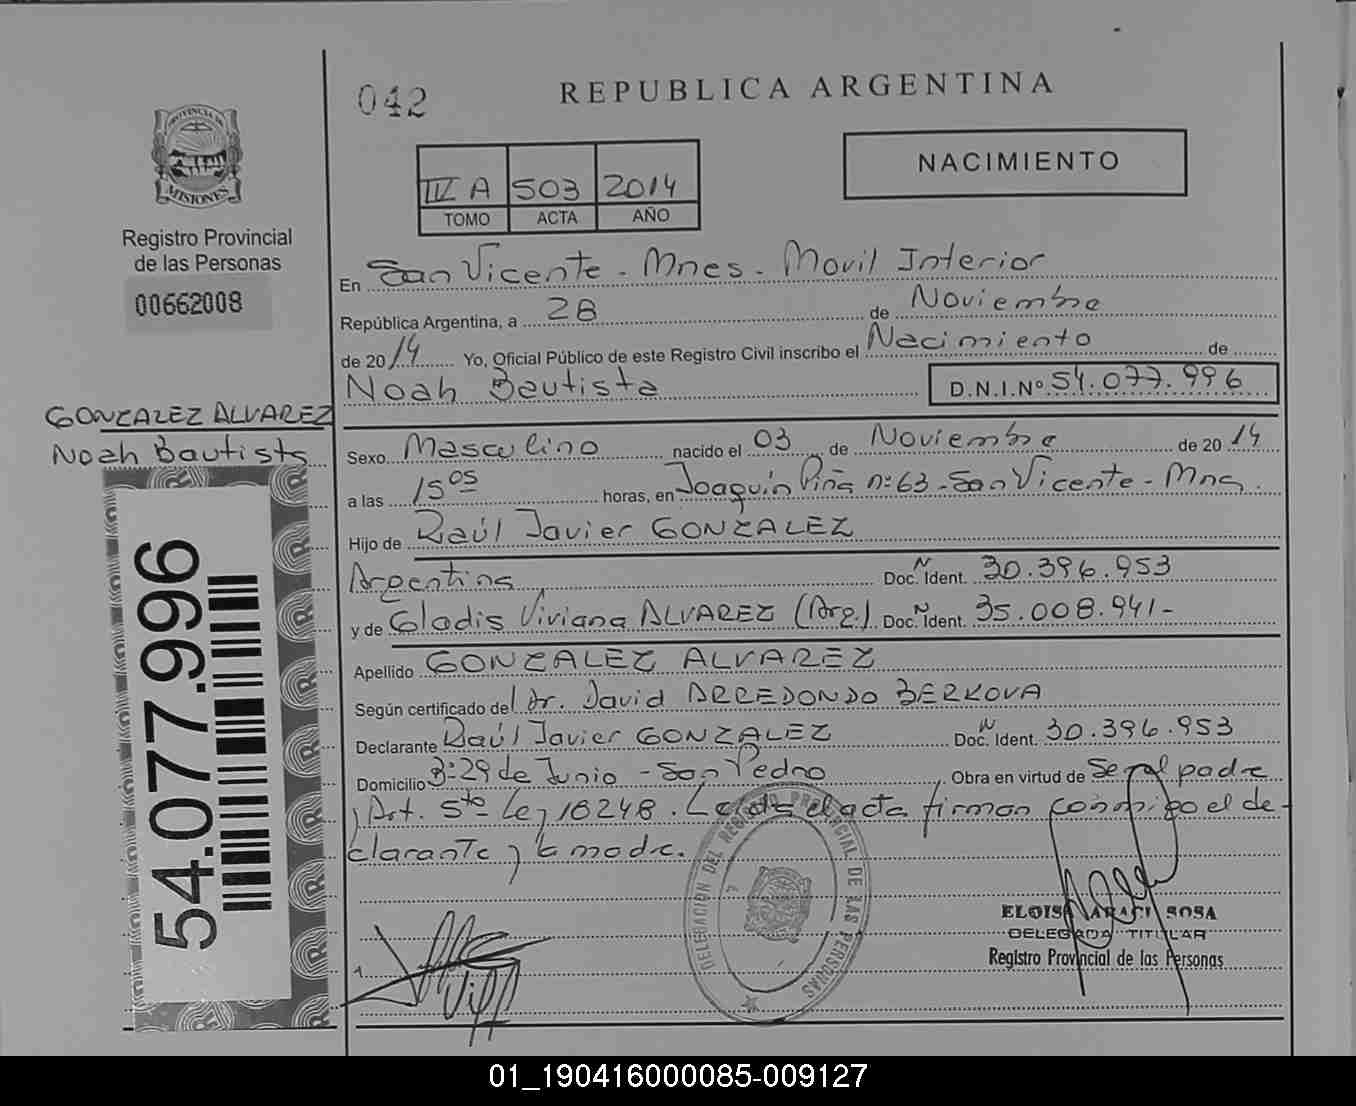 042
REPUBLICA ARGENTINA
PROVINCIA DE
MISIONES
Registro Provincial
de las Personas
00662008
IV A 503 2014
TOMO ACTA AÑO
NACIMIENTO
En San Vicente - Mnes - Movil Interior
República Argentina, a 28 de Noviembre
de 2014 Yo, Oficial Público de este Registro Civil inscribo el Nacimiento de
Noah Bautista D.N.I.Nº 54.077.996
GONZALEZ ALVAREZ
Noah Bautista
Sexo Masculino nacido el 03 de Noviembre de 2014
a las 15 05 horas, en Joaquín Piña nº 63 - San Vicente - Mns.
Hijo de Raúl Javier GONZALEZ
Argentina Doc. Ident. N 30.396.953
y de Gladis Viviana ALVAREZ (Arg.) Doc. Ident. N 35.008.941-
Apellido GONZALEZ ALVAREZ
Según certificado del Dr. David ARREDONDO BERKOVA
Declarante Raúl Javier GONZALEZ Doc. Ident. N 30.396.953
Domicilio Bº 29 de Junio - San Pedro Obra en virtud de Ser el padre
y Art. 5to Ley 18248. Leída el acta firman conmigo el de-
clarante y la madre.
54.077.996
DELEGACIÓN DEL REGISTRO PROVINCIAL DE LAS PERSONAS
ELOISA ARACI SOSA
DELEGADA TITULAR
Registro Provincial de las Personas
01_190416000085-009127